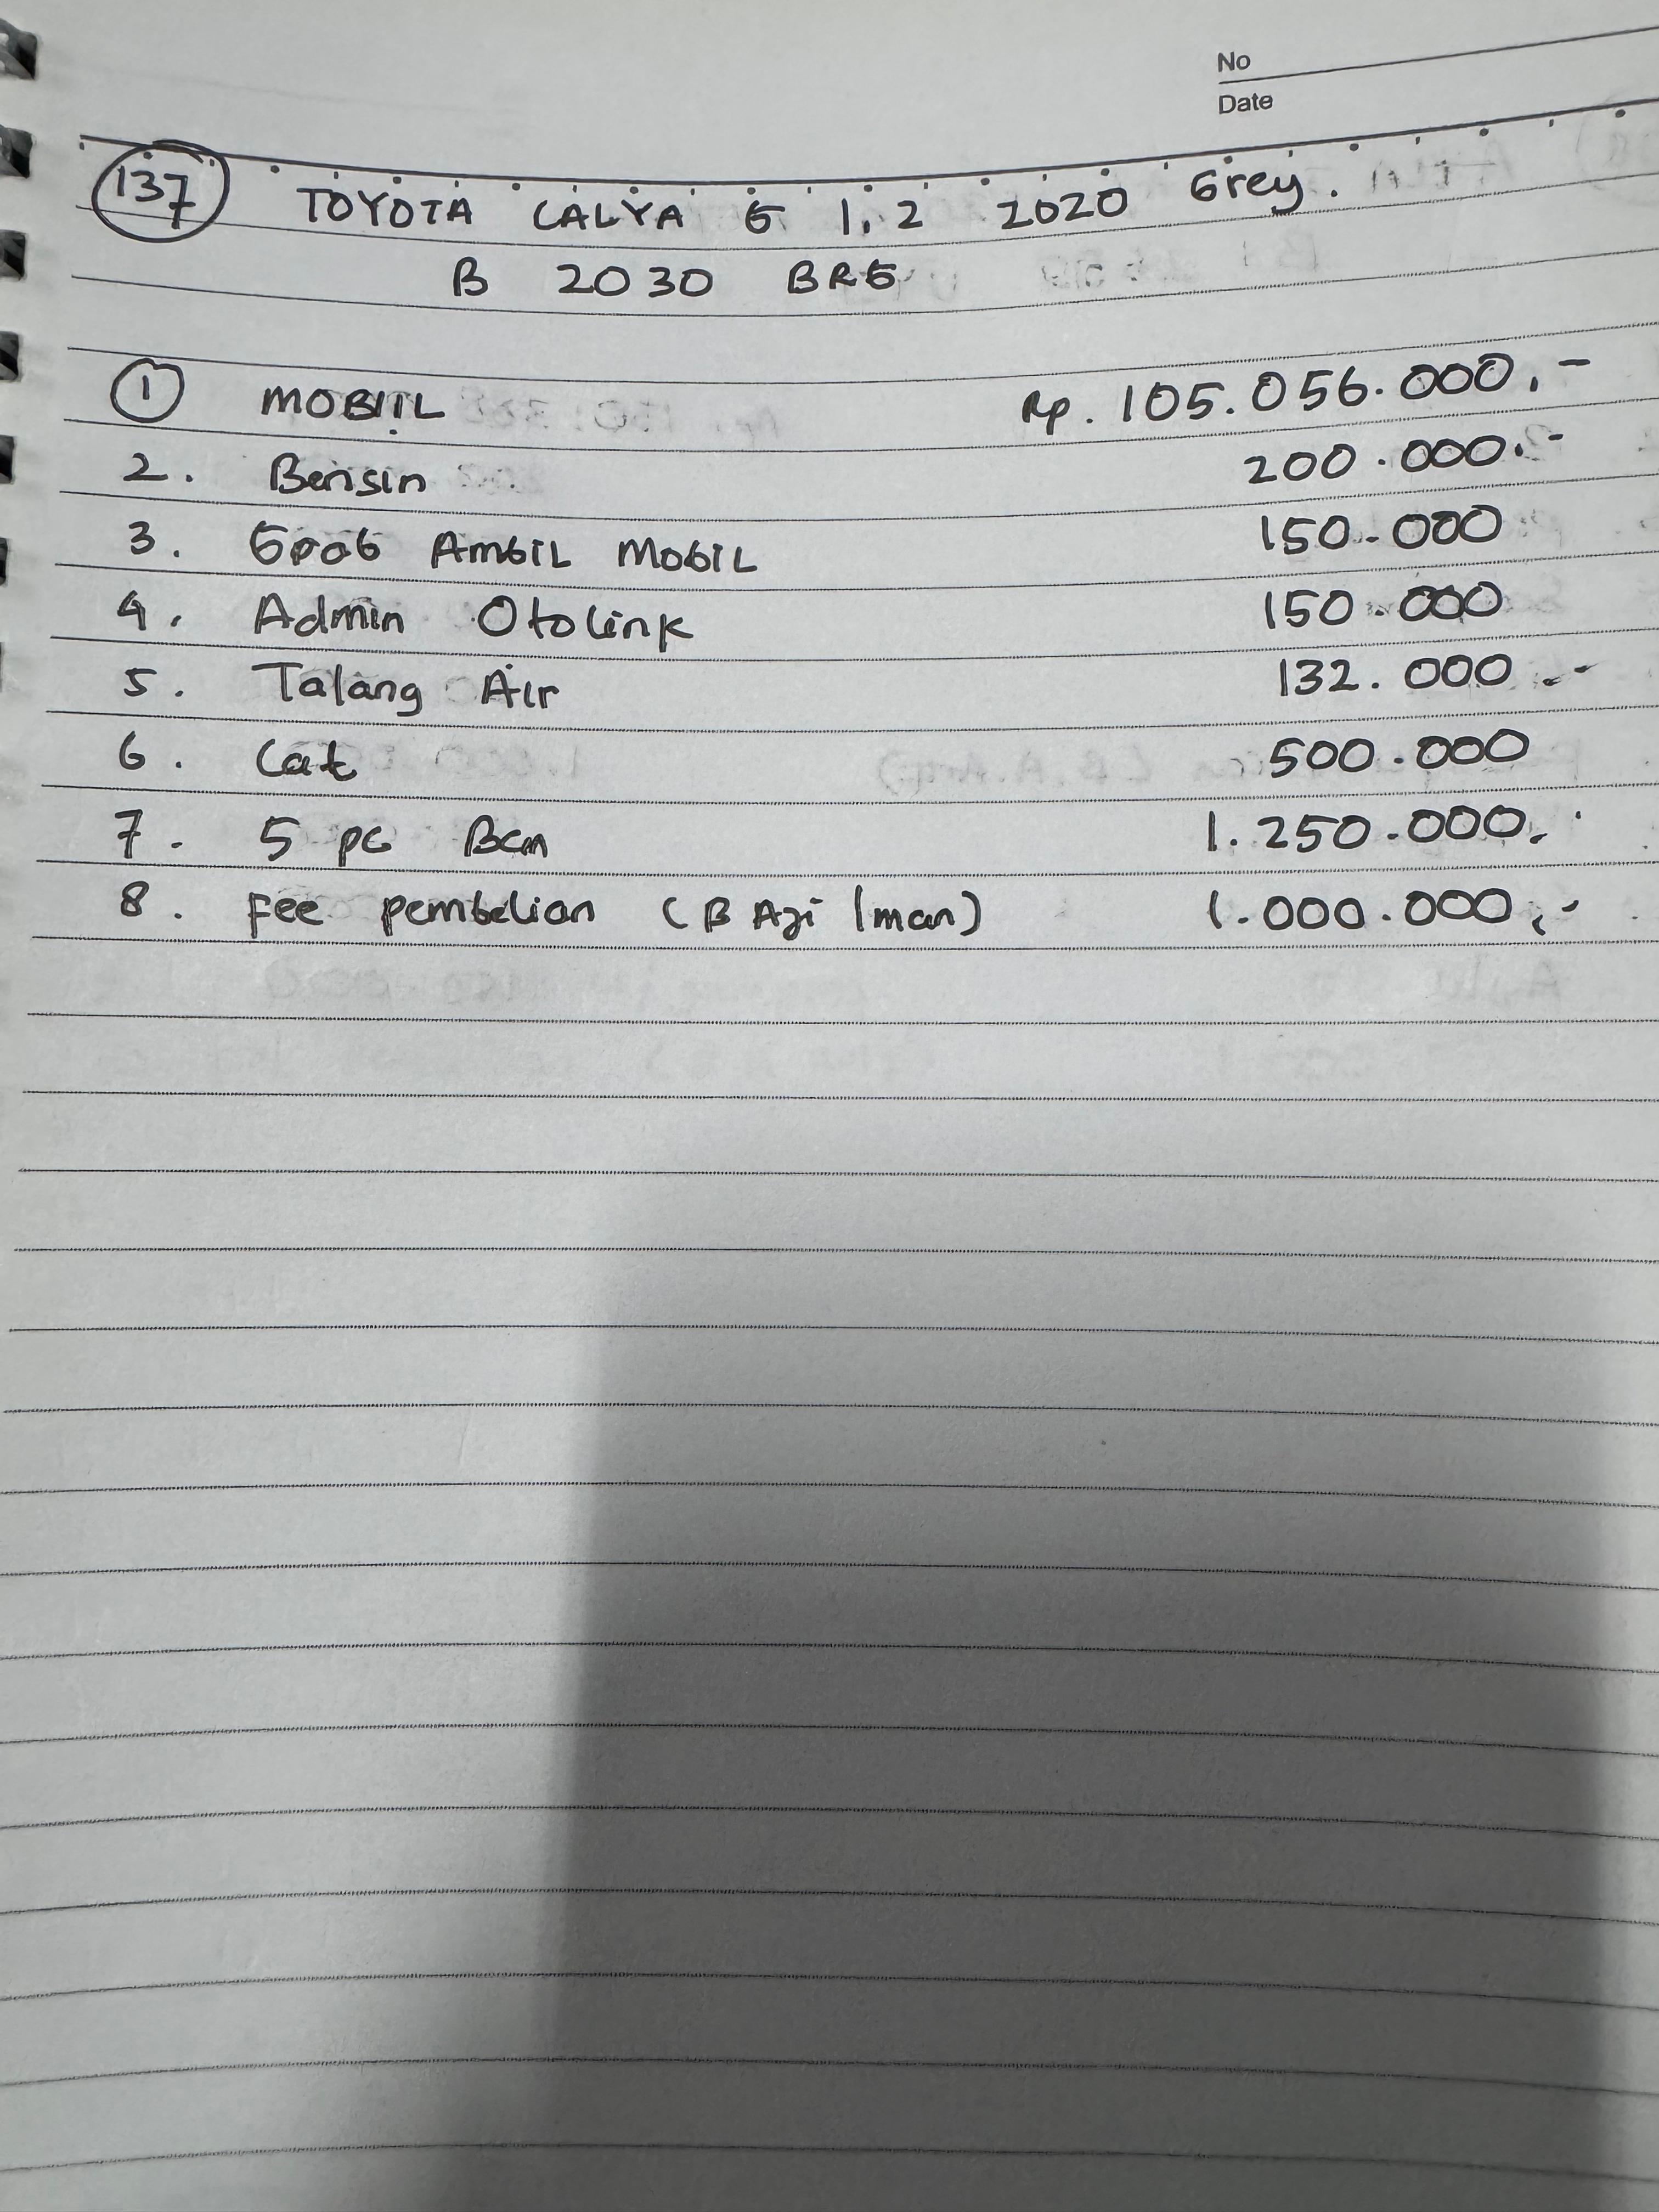 No
Date
137 TOYOTA CALYA G 1.2 2020 Grey.
B 2030 BRG
1 MOBIIL Rp. 105.056.000,-
2. Bensin 200.000,-
3. Grab Ambil Mobil 150.000
4. Admin Otolink 150.000
5. Talang Air 132.000,-
6. Cat 500.000
7. 5 pc Ban 1.250.000,-
8. Fee pembelian (B Aji Iman) 1.000.000,-